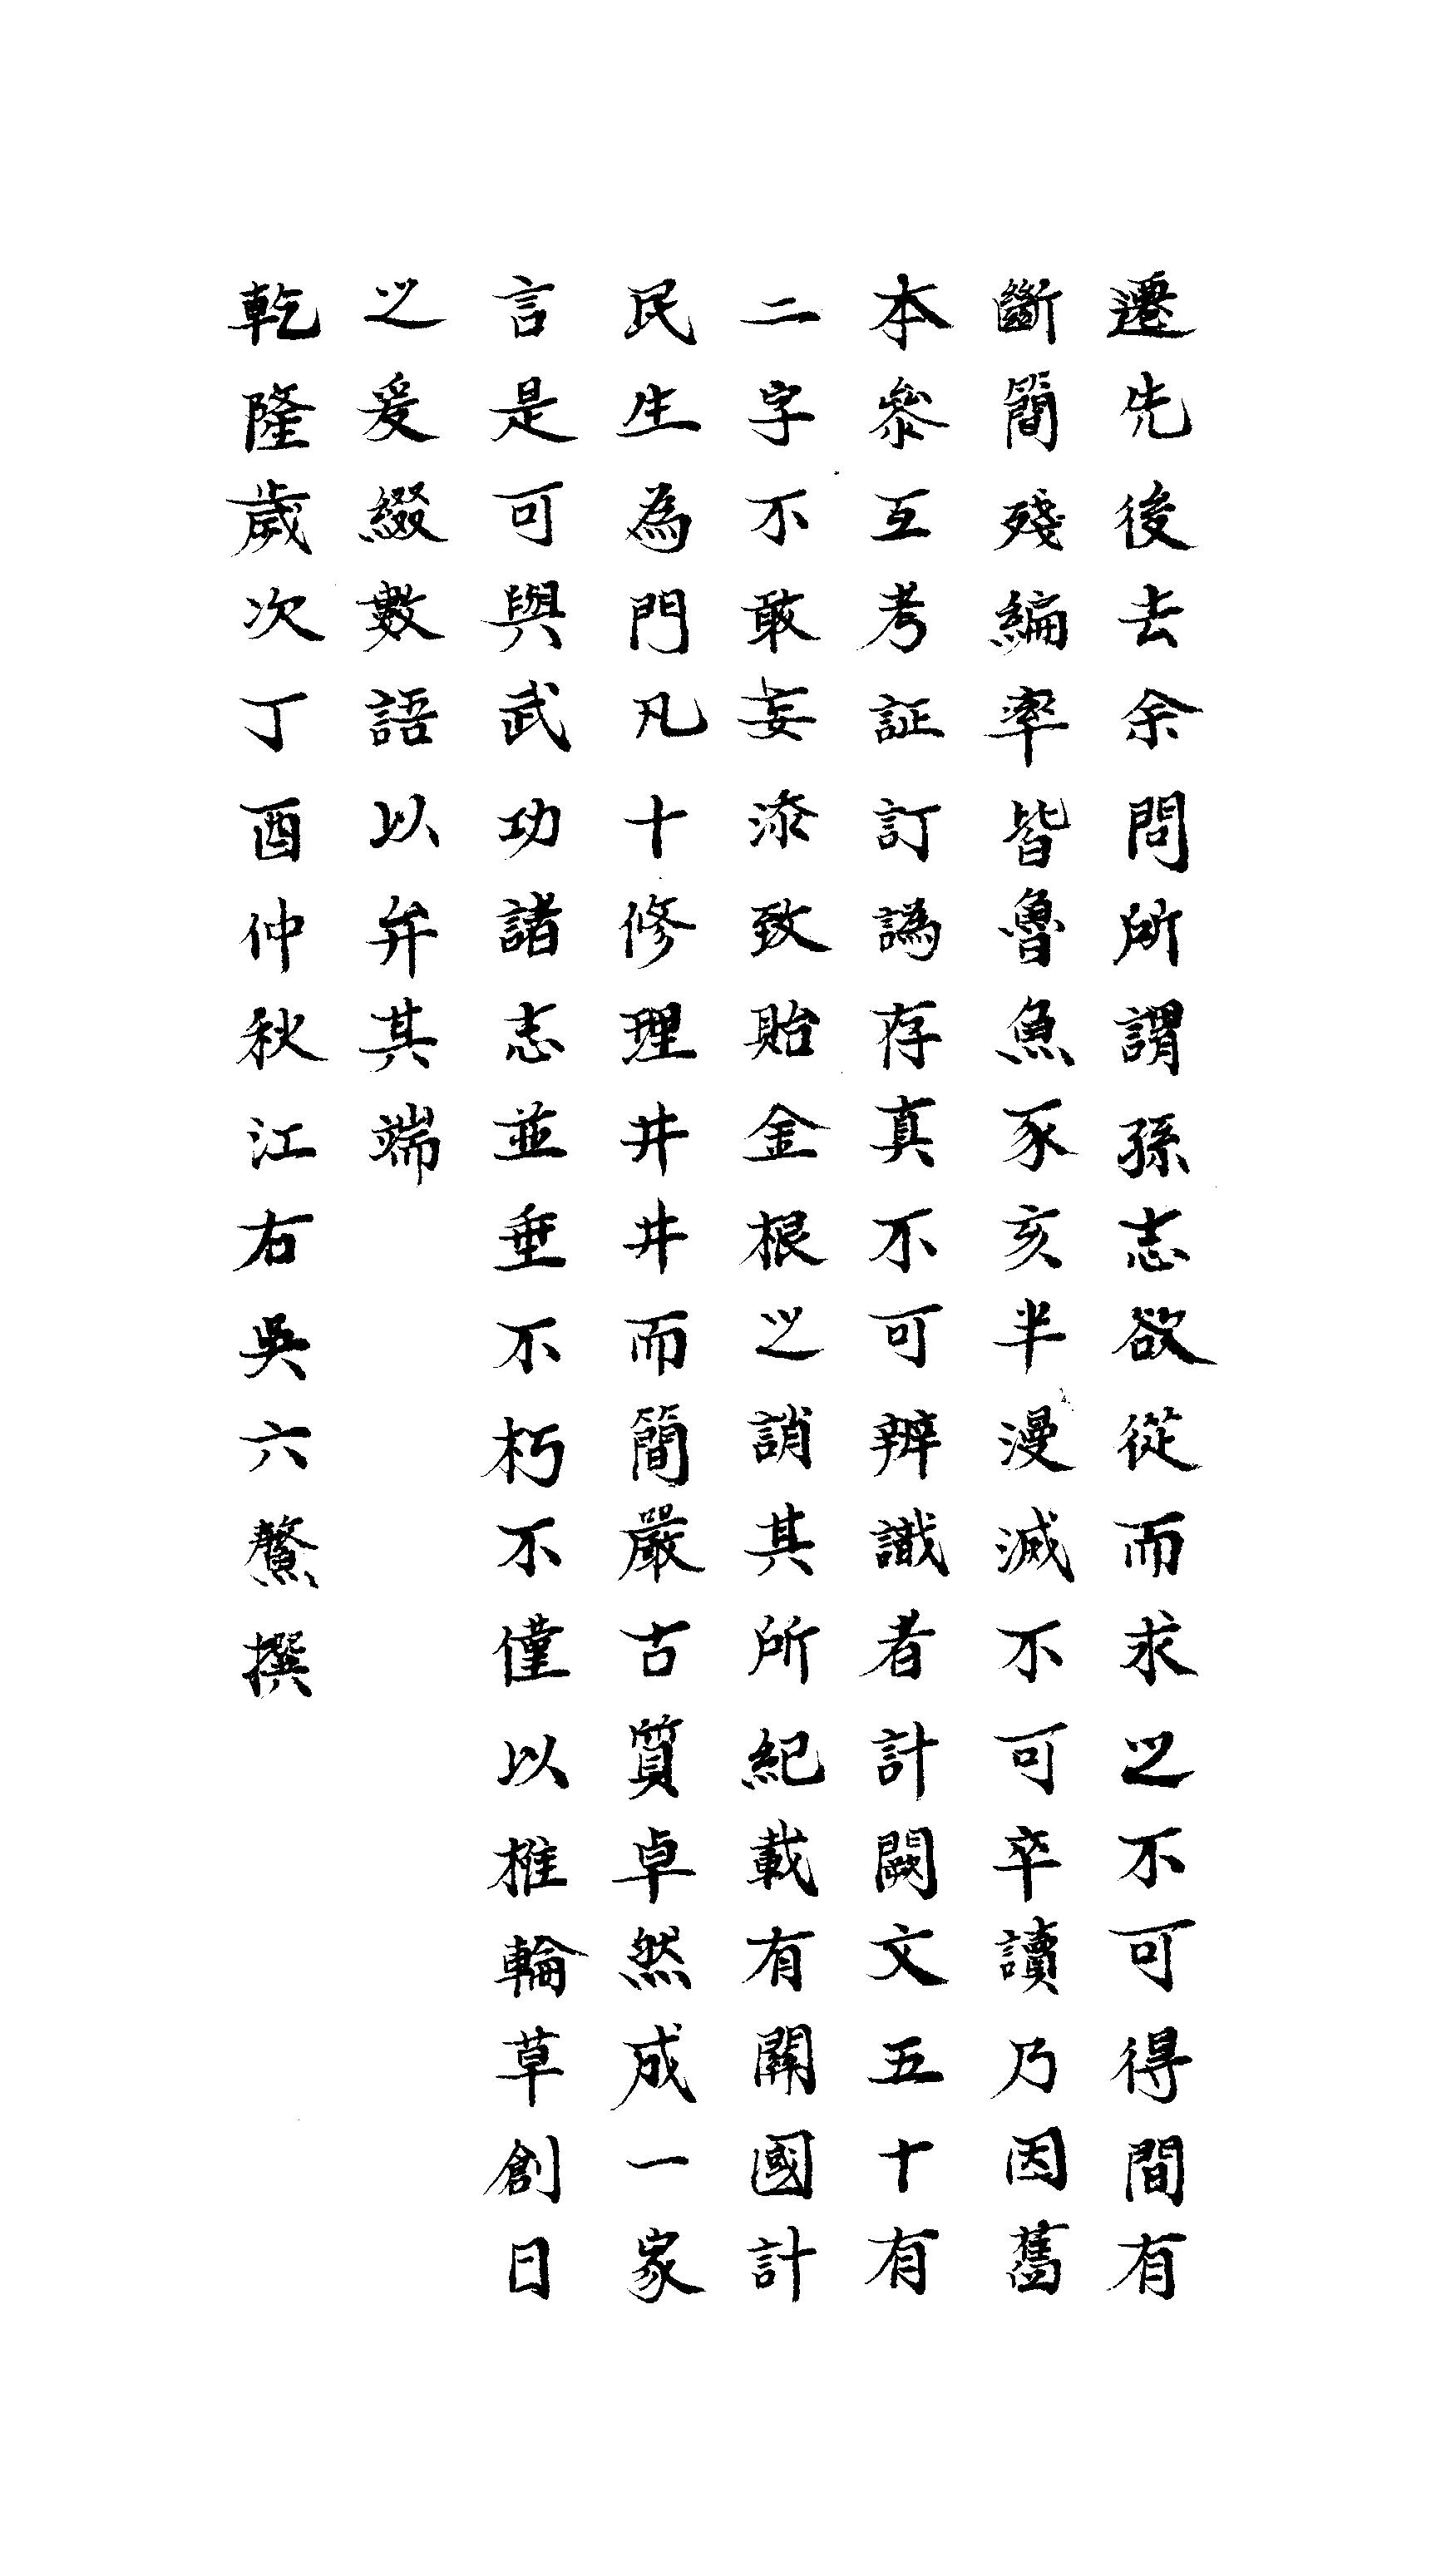 遷先後去余問所謂孫志欲從而求之不可得間有
斷簡殘編率皆魯魚豕亥半漫滅不可卒讀乃因舊
本參互考証訂譌存真不可辨識者計闕文五十有
二字不敢妄添致貽金根之誚其所紀載有關國計
民生為門凡十修理井井而簡嚴古質卓然成一家
言是可與武功諸志並垂不朽不僅以椎輪草創目
之爰綴數語以弁其端
乾隆歲次丁酉仲秋江右吳六鰲撰